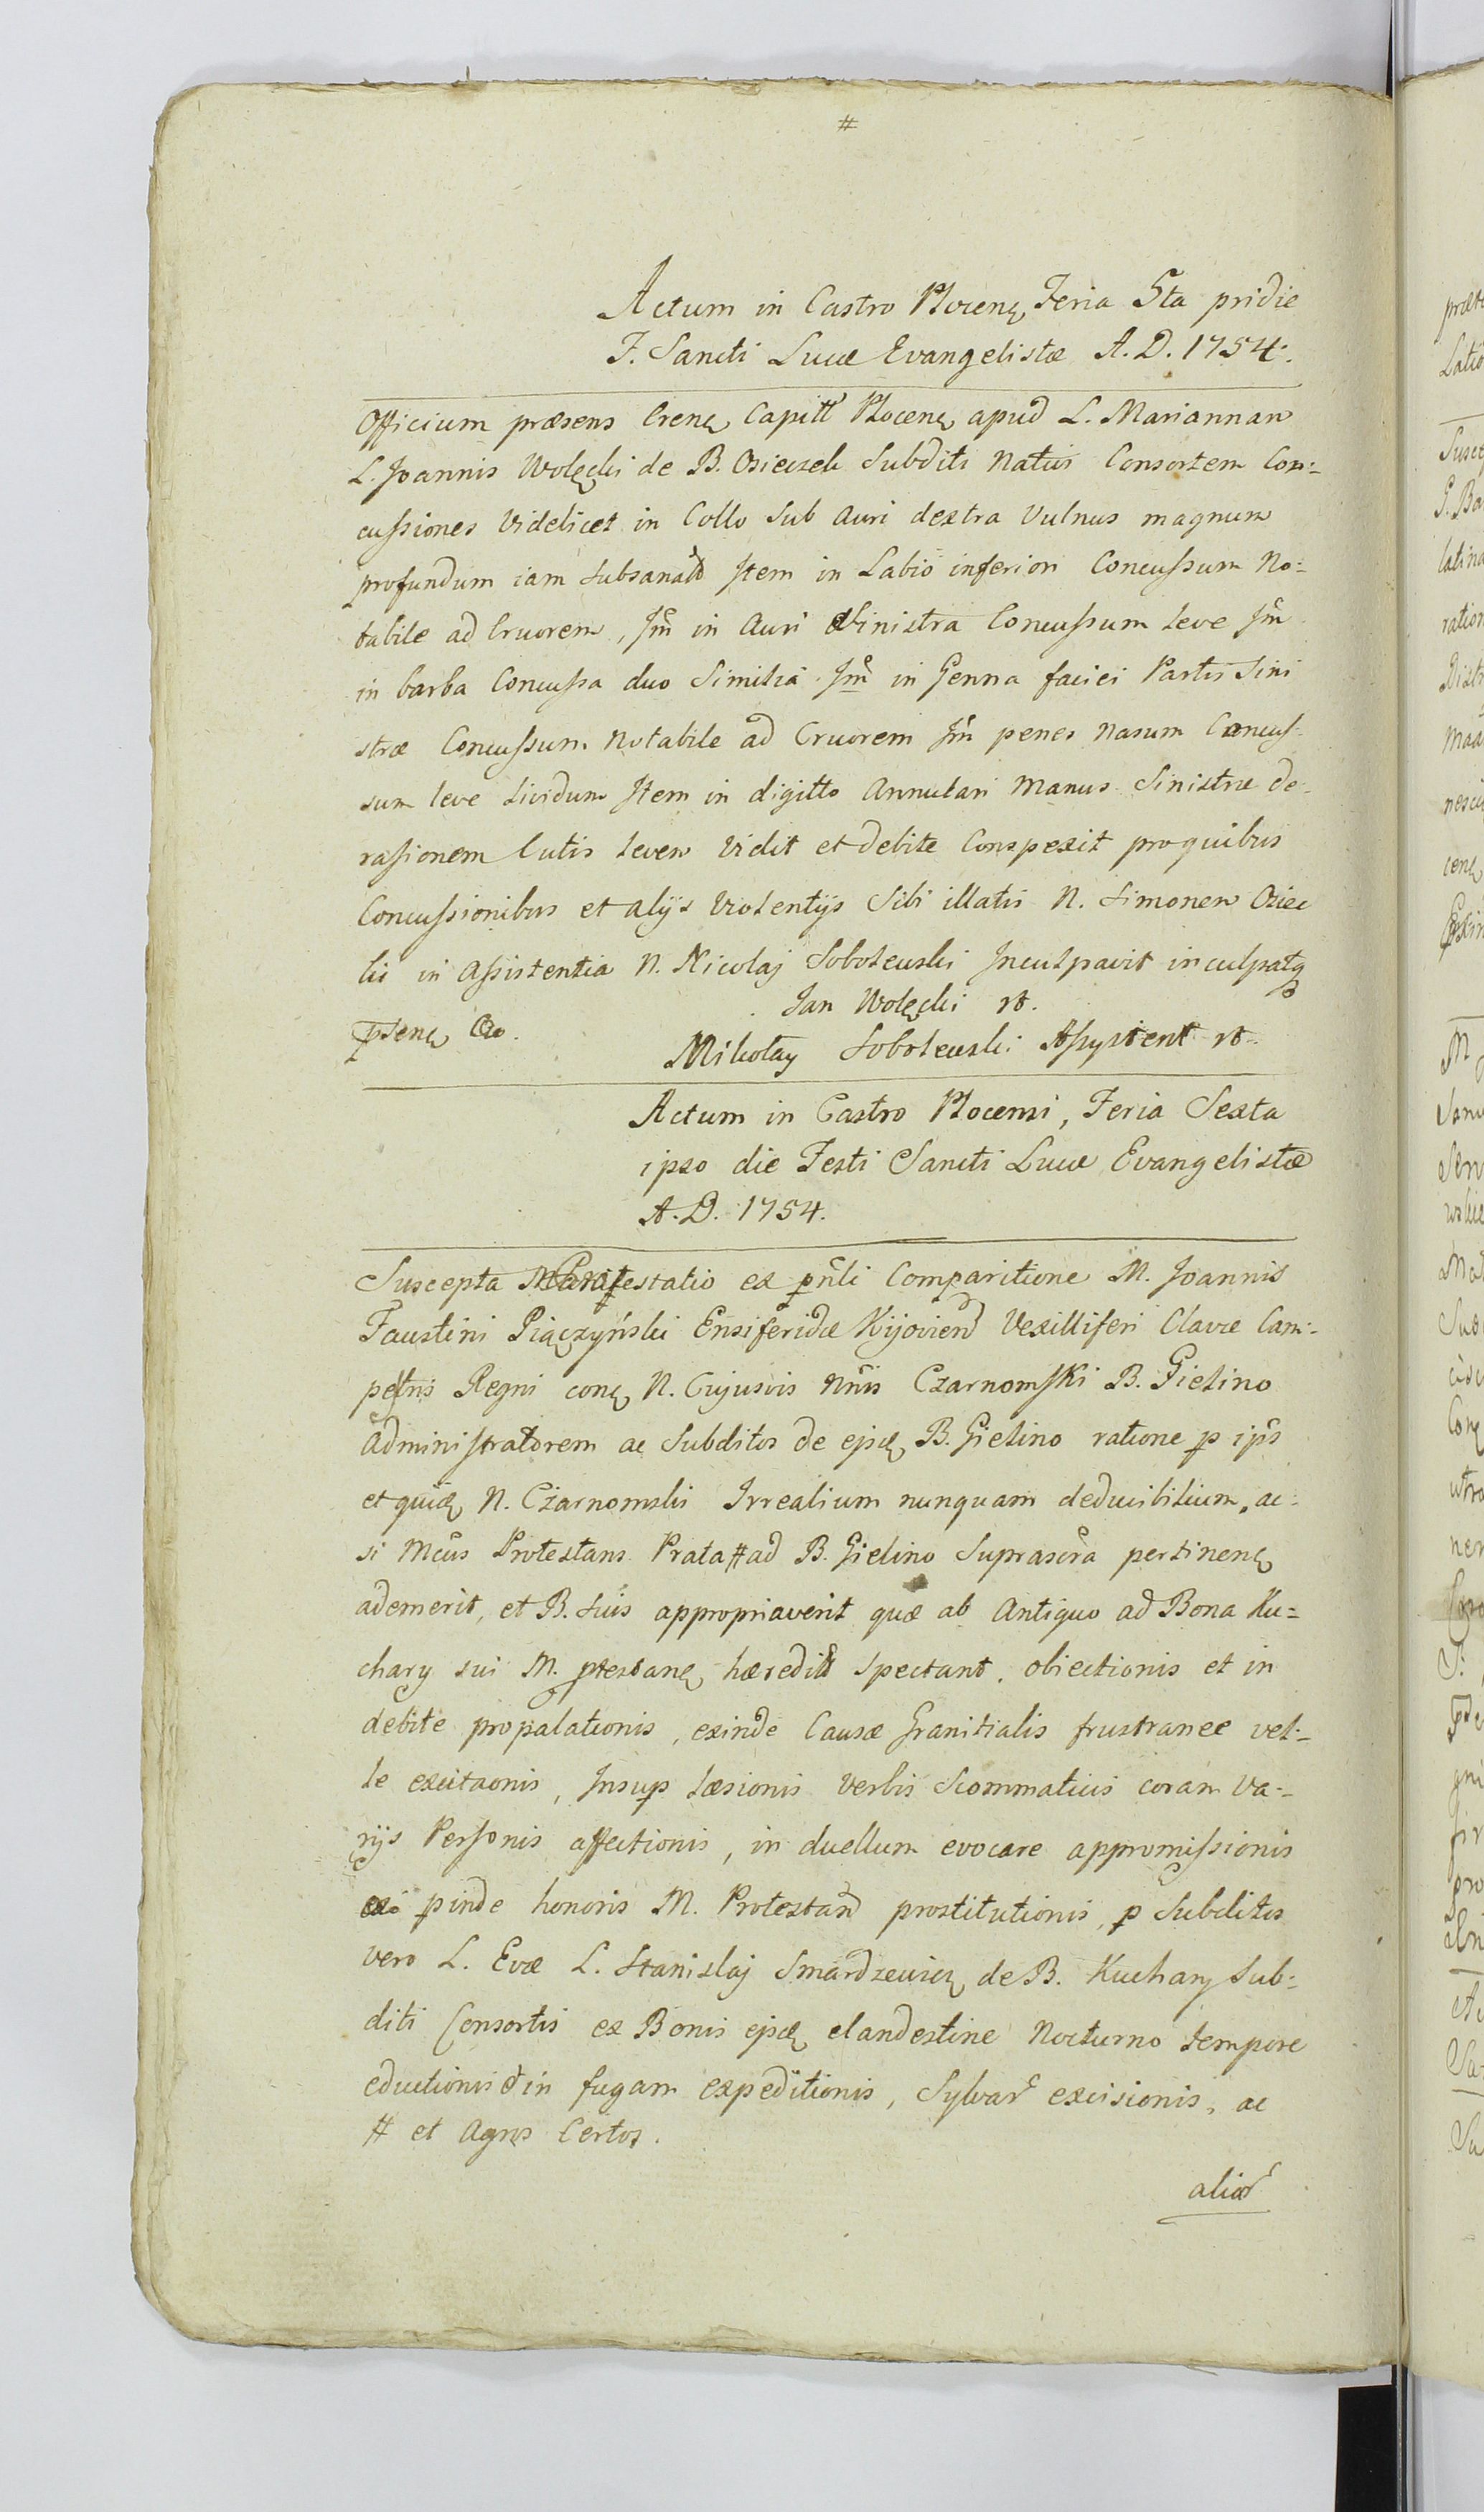 #
Actum in Castro Plocenę Feria 5ta pridie
F. Sancti Lucæ Evangelistæ A. D. 1754.
Officium præsens Crenę Capitł Plocenę apud L. Mariannam
L. Joannis Wolęcki de B. Osieczek Subditi Natus Consortem Con:
cussiones Videlicet in Collo Sub Auri dextra Vulnus magnum
profundum iam subsanatū Item in Labio inferiori Concussum No:
tabile ad Cruorem, Im̃ in Auri Sinistra Concussum leve Im̃
in barba Concussa duo Similia. Im̃ in Genna faciei Partis Sini
stræ Concussum Notabile ad Cruorem Im̃ penes nasum Concus-
sum leve lividum Item in digitto Annulari Manus Sinistræ de-
rassionem Cutis levem Vidit et debite Conspexit pro quibus
Concussionibus et alijs Violentijs Sibi illatis N. Simonem Osiec
ki in Assistentia N. Nicolaj Sobolewski Inculpavit inculpatq
Jan Wolęcki
psenę
Mikołay Sobolewski Assystent
Actum in Castro Plocensi, Feria Sexta
ipso die Festi Sancti Lucæ Evangelistæ
A. D. 1754.
Suscepta Manifestatio ex pñli Comparitione M. Joannis
Faustini Piączyński Ensiferidæ Kijovien Vexilliferi Clavæ Cam:
pestris Regni conę N. Cujusvis Nñis Czarnomski B. Gielino
Administratorem ac Subditos de ejsdę B. Gielino ratione p ip̃s
et quidę N. Czarnomski Irrealium nunquam deducibilium, ac-
si Mcus Protestans Prata # ad B. Gielino Suprascra pertinenę
ademerit, et B. suis appropriaverit quæ ab Antiquo ad Bona Ku=
chary sui M. ptestanę hæreditł spectant, obiectionis et in
debite propalationis, exinde Causæ Granitialis frustranee vel:
le excitaonis, Insup læsionis Verbis Scommaticis coram Va:
rijs Personis affectionis, in duellum evocare appromissionis
pinde honoris M. Protestan prostitutionis, p Subditos
vero L. Evæ L. Stanislaj Smardzewicę de B. Kuchary Sub:
diti Consortis ex Bonis ejsdę clandestine Nocturno tempore
eductionis & in fugam expeditionis, Sylvar excisionis, ac
# et Agros Certos.
alior